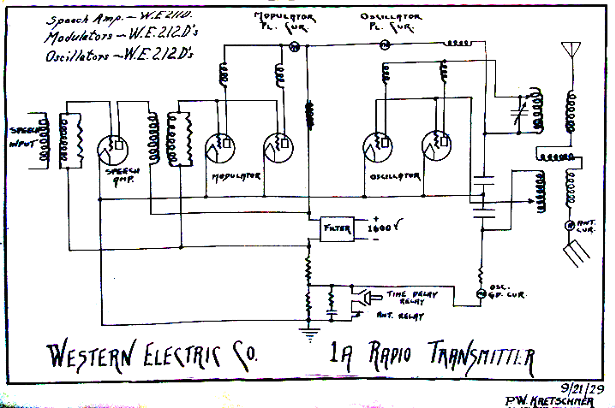 Speech Amp. - W.E. 211D.
Modulators - W.E. 212.D's
Oscillators - W.E. 212.D's
MODULATOR
PL. CUR.
OSCILLATOR
PL. CUR.
SPEECH
INPUT
SPEECH
AMP.
MODULATOR
OSCILLATOR
ANT.
CUR.
FILTER
+
1600 V
-
OSC.
GD. CUR.
TIME DELAY
RELAY
ANT. RELAY
WESTERN ELECTRIC CO. 1A RADIO TRANSMITTER
9/21/29
P.W. KRETSCHMER